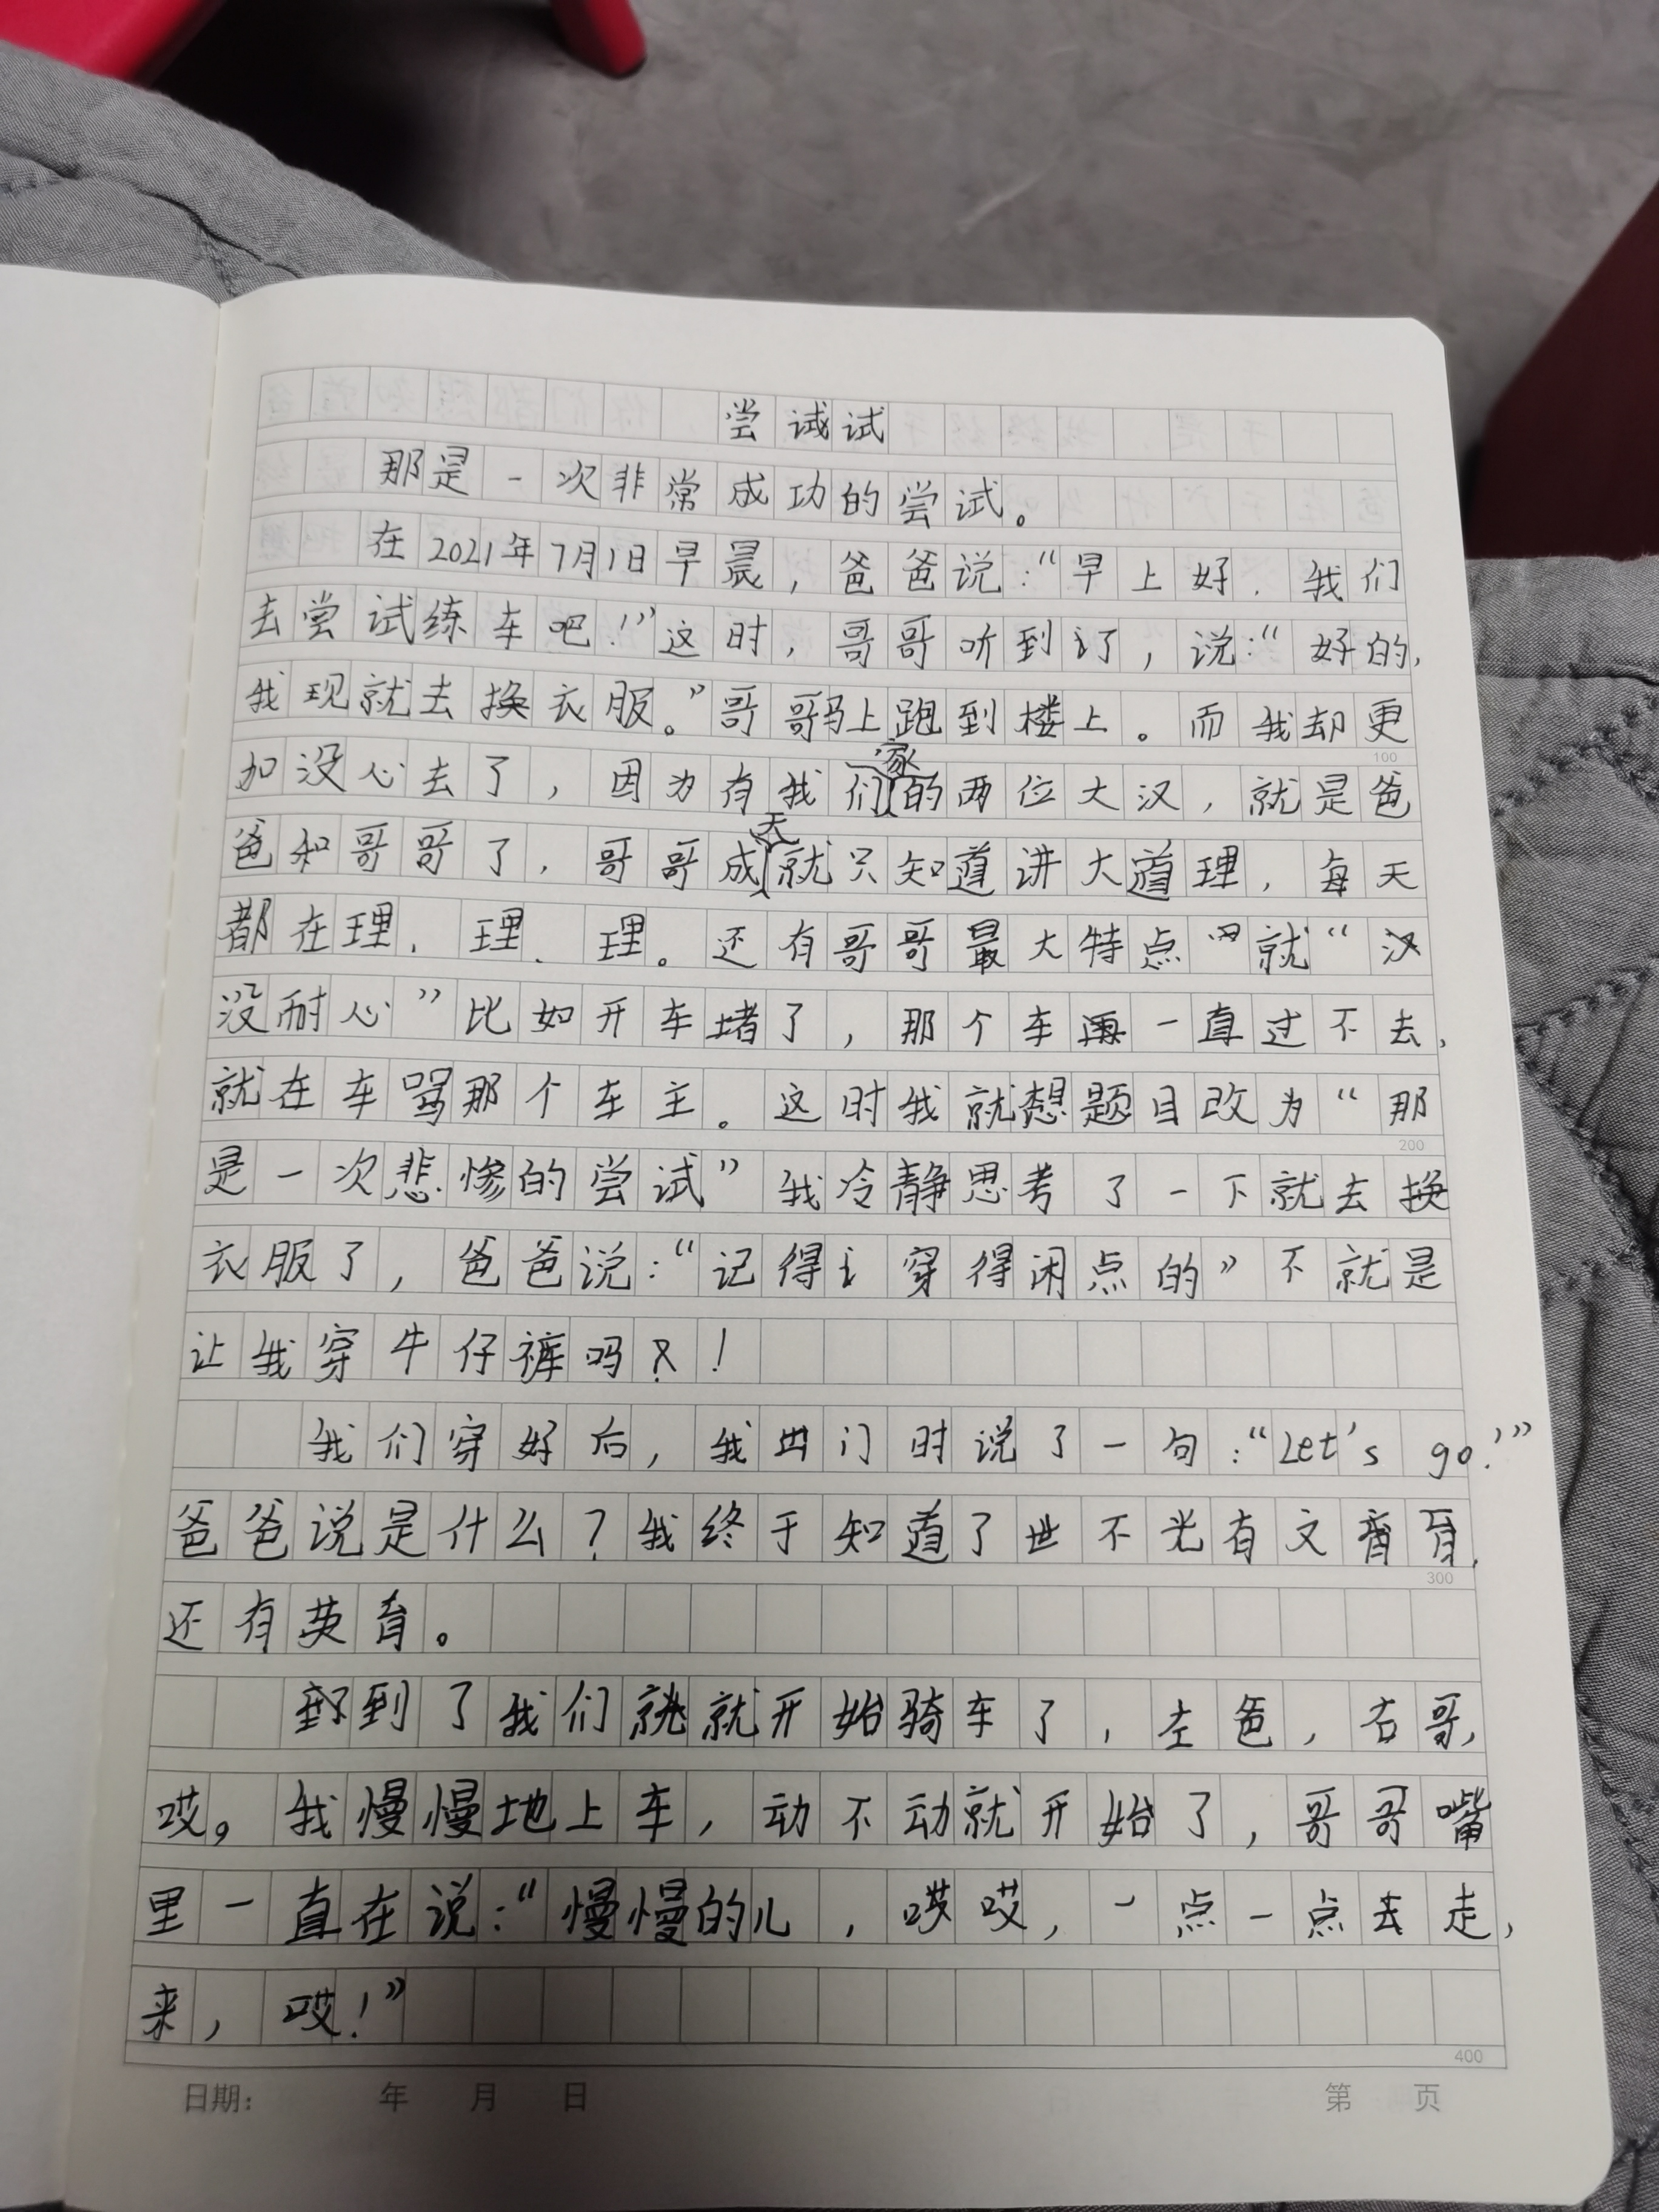 尝试试
那是一次非常成功的尝试。
在2021年7月1日早晨，爸爸说：“早上好．我们
去尝试练车吧！”这时，哥哥听到了，说：“好的，
我现就去换衣服。”哥哥马上跑到楼上。而我却更
加没心去了，因为有我们家的两位大汉，就是爸
爸和哥哥了，哥哥成天就只知道讲大道理，每天
都在理、理、理。还有哥哥最大特点就“
没耐心”比如开车堵了，那个车一直过不去，
就在车骂那个车主。这时我就想题目改为“那
是一次悲惨的尝试”我冷静思考了一下就去换
衣服了，爸爸说：“记得穿得闲点的”不就是
让我穿牛仔裤吗？！
我们穿好后，我出门时说了一句：“Let's go！”
爸爸说是什么？我终于知道了世不光有文盲，
还有英盲。
到了我们就开始骑车了，左爸，右哥，
哎。我慢慢地上车，动不动就开始了，哥哥嘴
里一直在说：“慢慢的儿，哎哎，一点一点去走，
来，哎！”
100
200
300
400
日期： 年 月 日 第 页